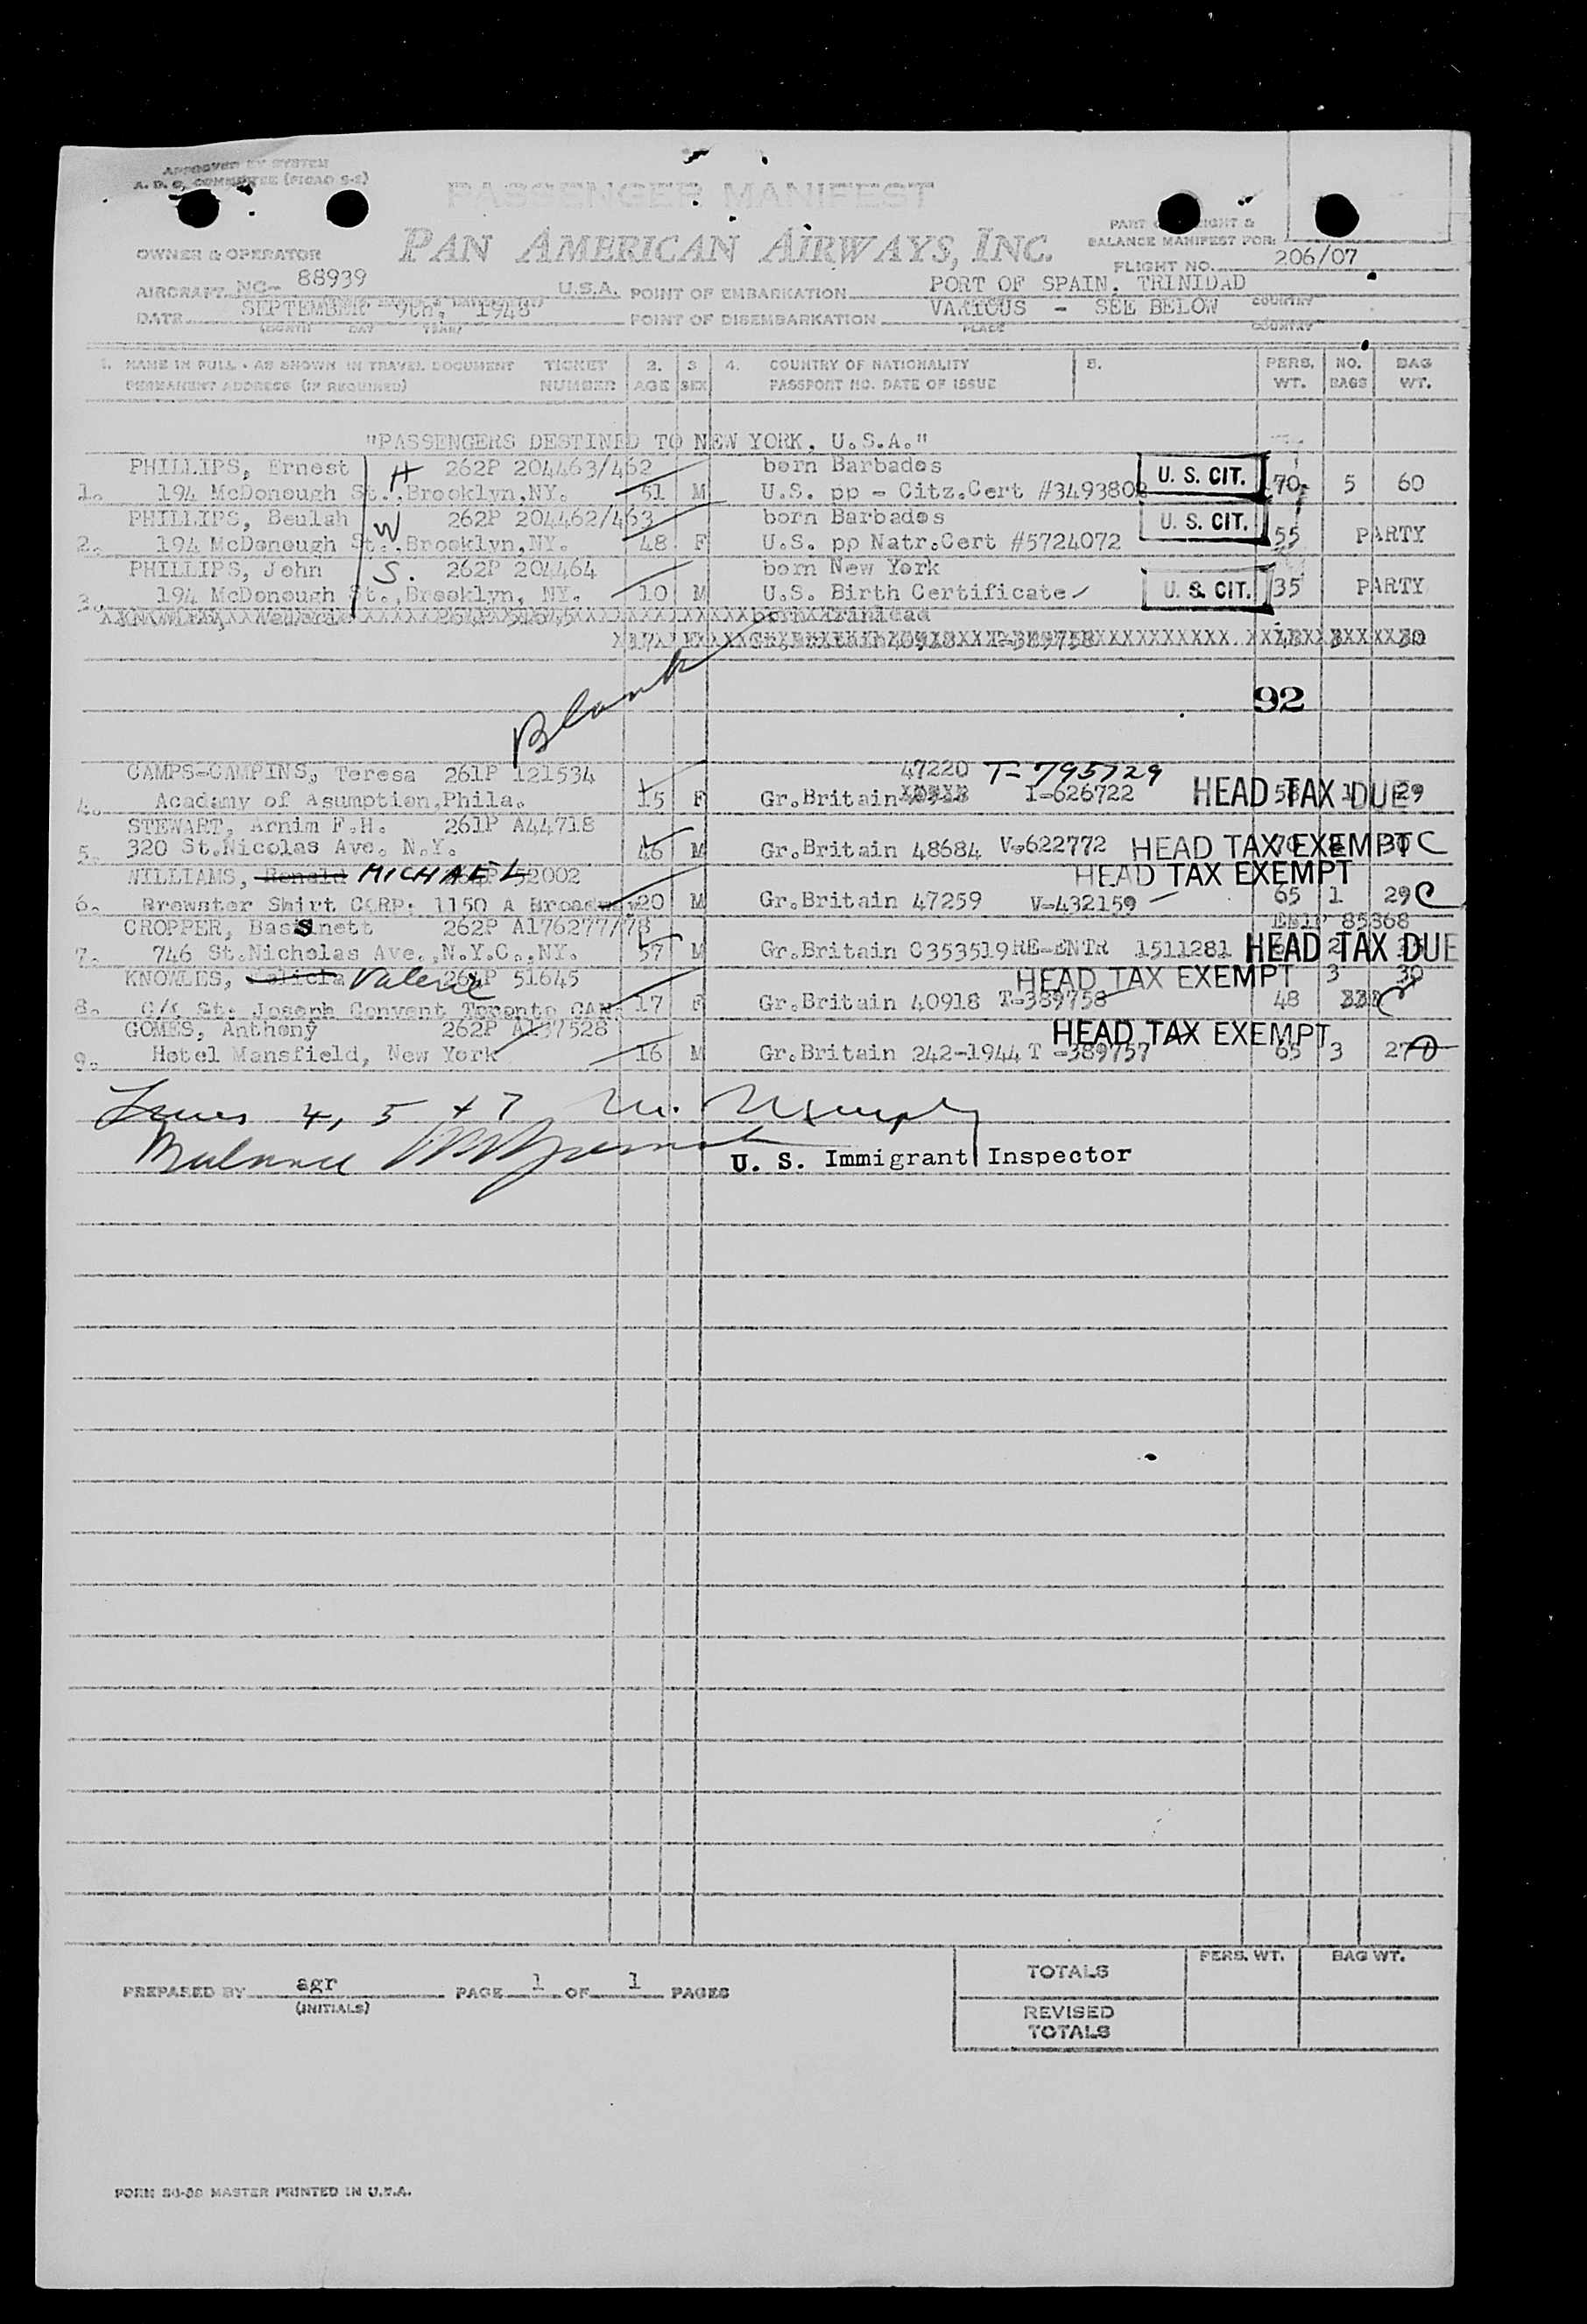 APPROVED BY SYSTEM
A. D. C. COMMITTEE (PICAO S-2)
PASSENGER MANIFEST
PAN AMERICAN AIRWAYS, INC.
PART OF FLIGHT &
BALANCE MANIFEST FOR:
OWNER & OPERATOR
FLIGHT NO. 206/07
AIRCRAFT NC- 88939 U.S.A. POINT OF EMBARKATION PORT OF SPAIN, TRINIDAD
DATE SEPTEMBER 9th, 1948 POINT OF DISEMBARKATION VARIOUS - SEE BELOW COUNTRY
(MONTH DAY YEAR) PLACE COUNTRY
1. NAME IN FULL - AS SHOWN IN TRAVEL DOCUMENT TICKET 2. 3 4. COUNTRY OF NATIONALITY 5. PERS. NO. BAG
PERMANENT ADDRESS (IF REQUIRED) NUMBER AGE SEX PASSPORT NO. DATE OF ISSUE WT. BAGS WT.
"PASSENGERS DESTINED TO NEW YORK. U.S.A."
PHILLIPS, Ernest H 262P 204463/462 born Barbados
1. 194 McDonough St.,Brooklyn,NY. 51 M U.S. pp - Citz.Cert #3493802 U. S. CIT. 70 5 60
PHILLIPS, Beulah W 262P 204462/463 born Barbados
2. 194 McDonough St.,Brooklyn,NY. 48 F U.S. pp Natr.Cert #5724072 U. S. CIT. 55 PARTY
PHILLIPS, John S. 262P 204464 born New York
3. 194 McDonough St.,Brooklyn, NY. 10 M U.S. Birth Certificate U. S. CIT. 35 PARTY
born Trinidad
17 F 40918 T-389758 48 3 30
92
Blank
CAMPS-CAMPINS, Teresa 261P 121534 47220 T-795729
4. Academy of Asumption,Phila. 15 F Gr.Britain I-626722 HEAD TAX DUE 58 1 29
STEWART, Arnim F.H. 261P A44718
5. 320 St.Nicolas Ave. N.Y. 46 M Gr.Britain 48684 V-622772 HEAD TAX EXEMPT 70 30 C
WILLIAMS, Ronald MICHAEL 52002 HEAD TAX EXEMPT
6. Brewster Shirt CORP. 1150 A Broadway 20 M Gr.Britain 47259 V-432159 65 1 29 C
CROPPER, Bassnett 262P A176277/78 85368
7. 746 St.Nicholas Ave.,N.Y.C.,NY. 57 M Gr.Britain C353519 RE-ENTR 1511281 HEAD TAX DUE 2
KNOWLES, Valerie 261P 51645 HEAD TAX EXEMPT 3 30
8. C/O St. Joseph Convent Toronto CAN 17 F Gr.Britain 40918 T-389758 48 C
GOMES, Anthony 262P A137528 HEAD TAX EXEMPT
9. Hotel Mansfield, New York 16 M Gr.Britain 242-1944 T -389757 65 3 27
Lines 4, 5 + 7
Balance
U. S. Immigrant Inspector
PREPARED BY agr PAGE 1 OF 1 PAGES
(INITIALS)
PERS. WT. BAG WT.
TOTALS
REVISED
TOTALS
MASTER PRINTED IN U.S.A.